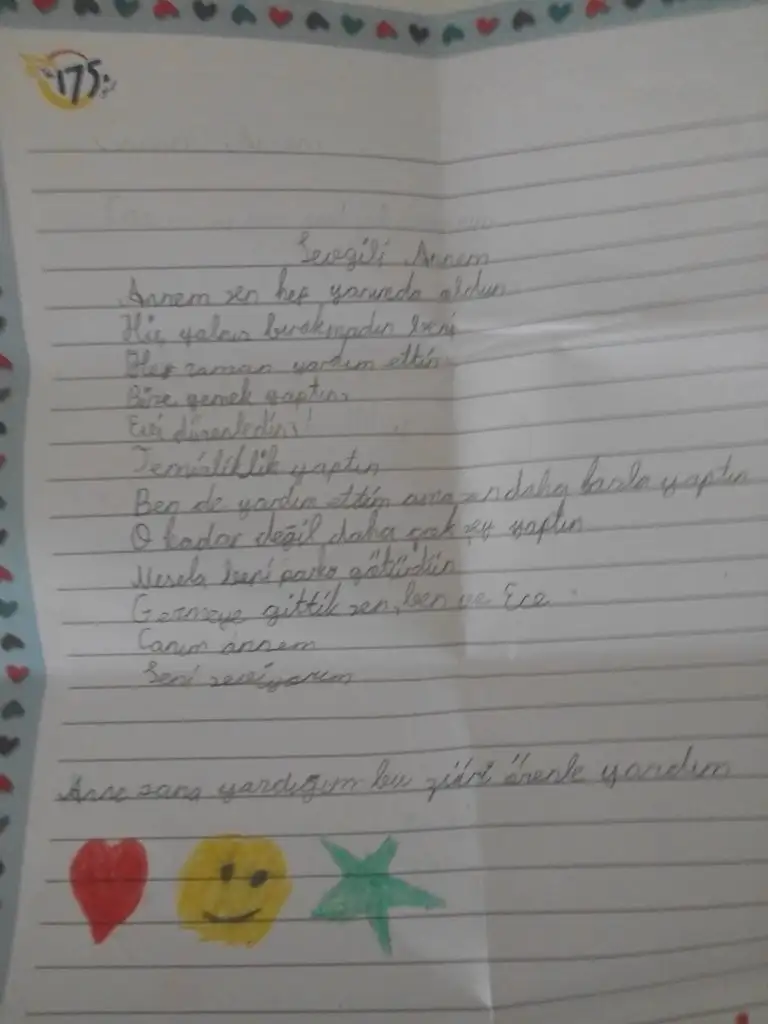 175.
Sevgili Annem
Annem sen hep yanımda oldun
Hiç yalnız bırakmadın beni
Her zaman yardım ettin
Bize yemek yaptın
Evi düzenledin!
Temizliklik yaptın
Ben de yardım ettim ama sen daha fazla yaptın
O kadar değil daha çok şey yaptın
Mesela beni parka götürdün
Gezmeye gittik sen, ben ve Ece
Canım annem
Seni seviyorum
Anne sana yazdığım bu şiiri özenle yazdım